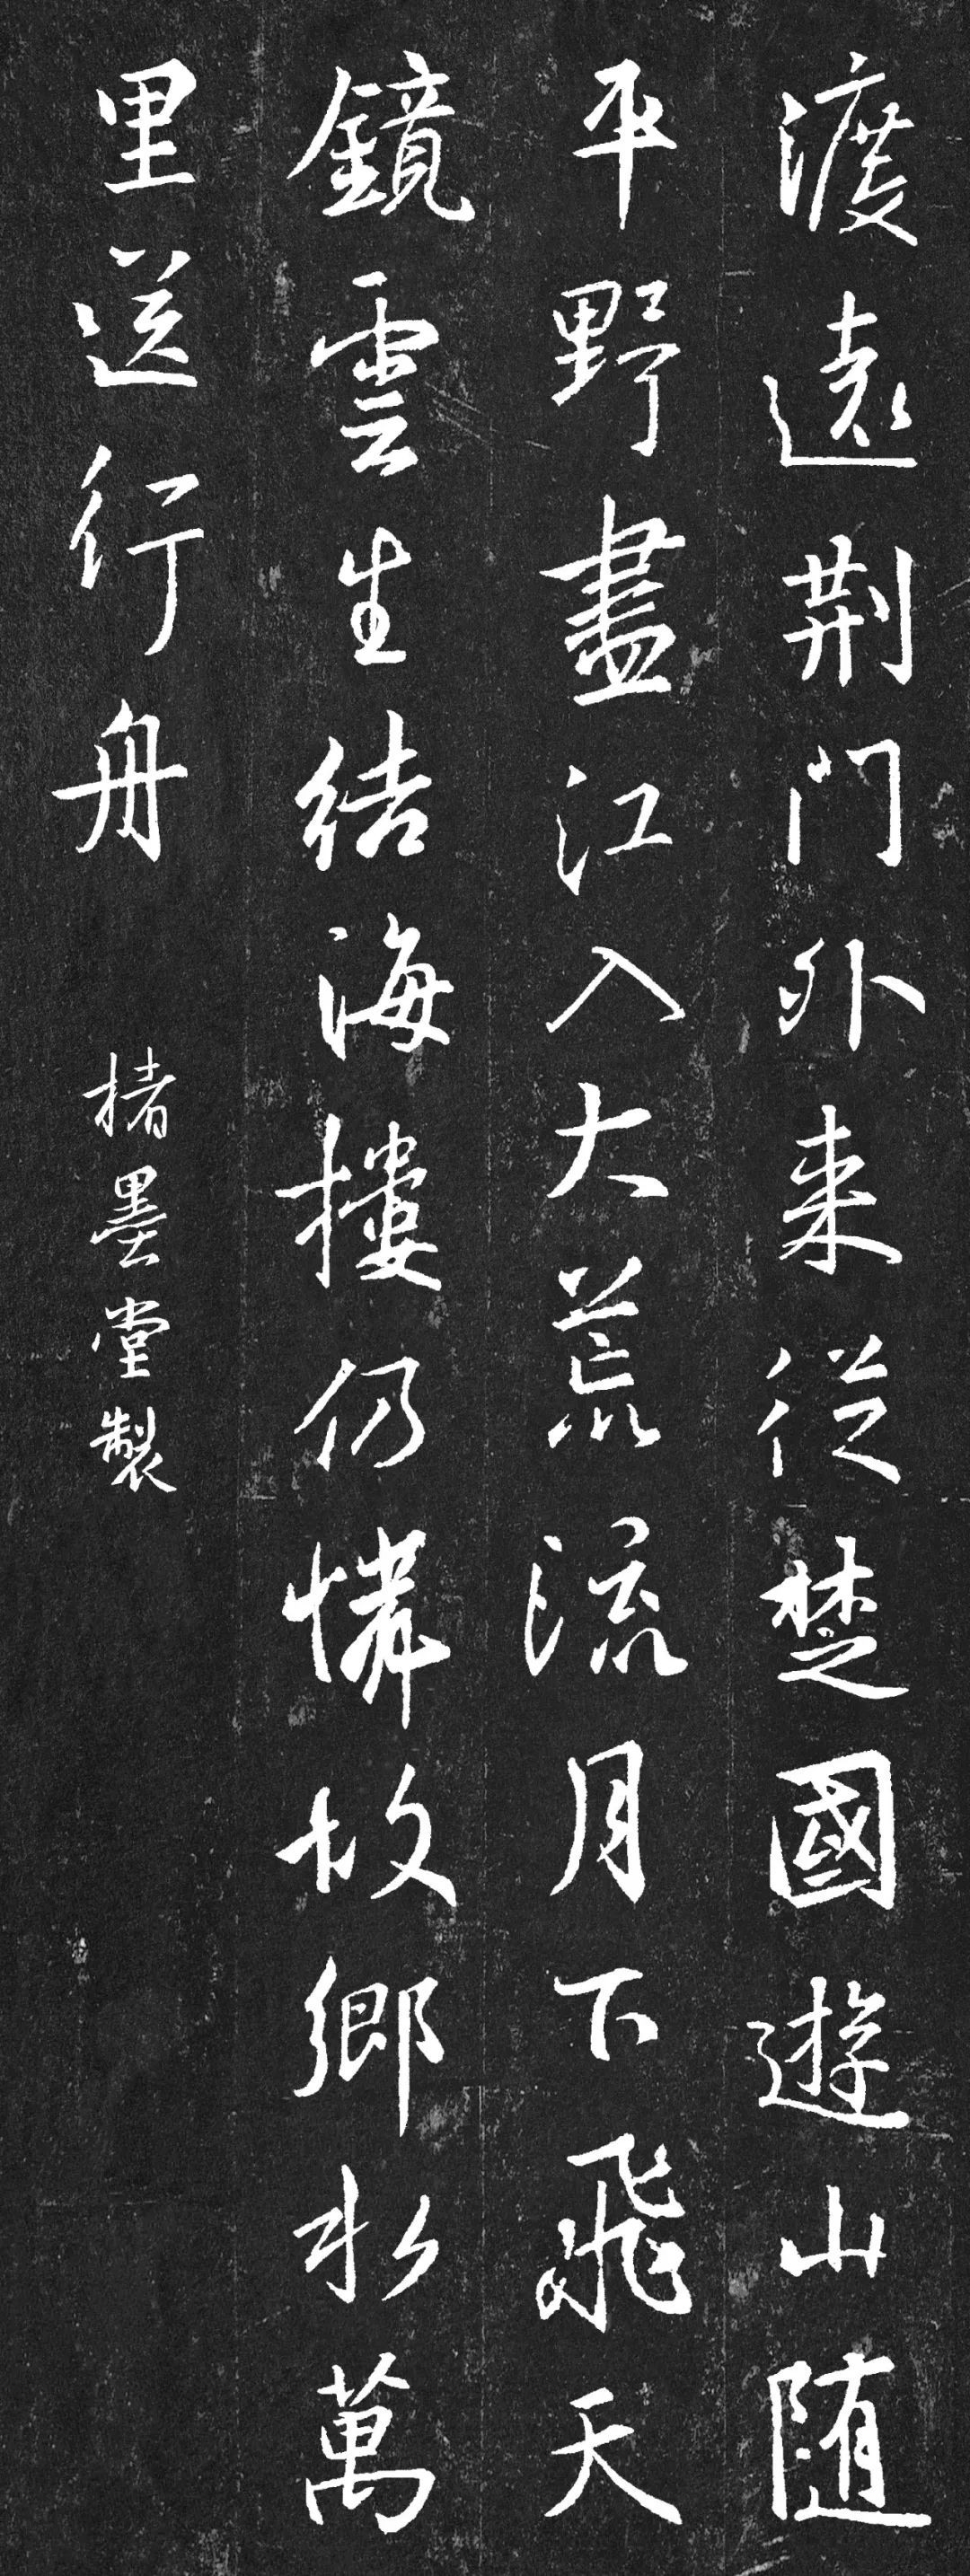 渡遠荊門外来従楚國遊山随
平野盡江入大荒流月下飛天
鏡雲生結海楼仍憐故鄉水萬
里送行舟 楮墨堂製